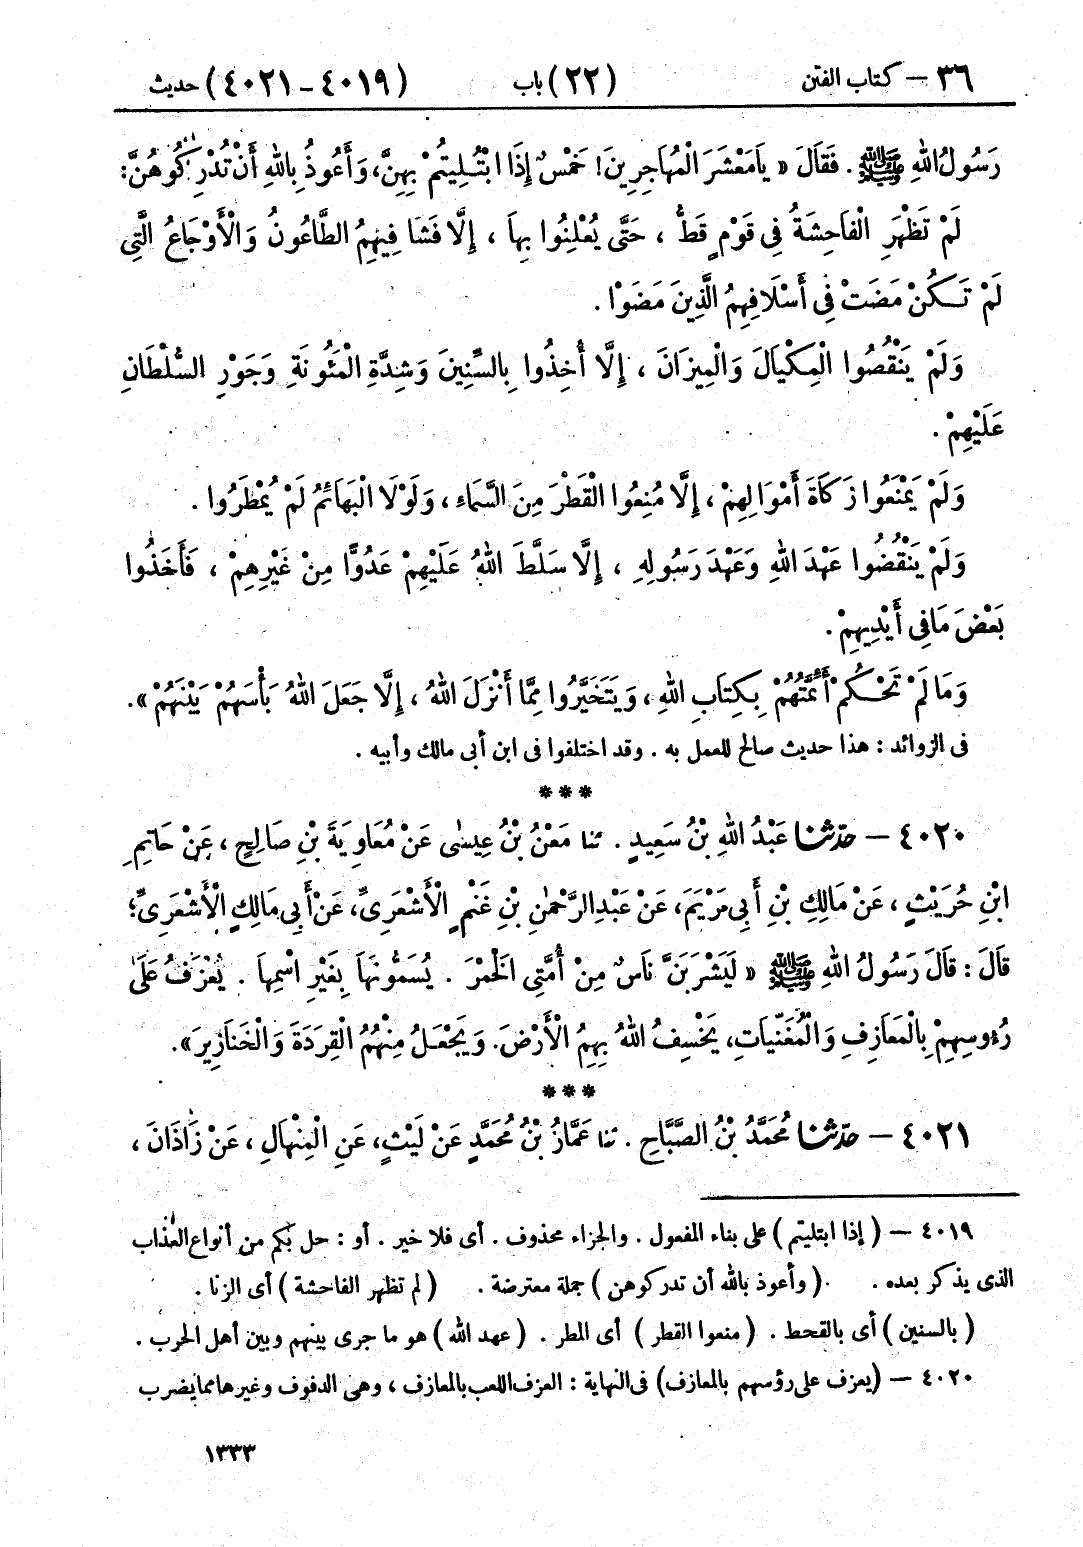 ٣٦ – كتاب الفتن (٢٢) باب (٤٠١٩ - ٤٠٢١) حديث
رَسُولُ اللهِ ﷺ . فَقَالَ « يَامَعْشَرَ الْمُهَاجِرِينَ! خَمْسٌ إِذَا ابْتُلِيتُمْ بِهِنَّ، وَأَعُوذُ بِاللهِ أَنْ تُدْرِكُوهُنَّ:
لَمْ تَظْهَرِ الْفَاحِشَةُ فِى قَوْمٍ قَطُّ ، حَتَّى يُعْلِنُوا بِهاَ ، إِلَّا فَشَا فِيهِمُ الطَّاعُونُ وَالْأَوْجَاعُ الَّتِى
لَمْ تَكُنْ مَضَتْ فِى أَسْلَافِهِمُ الَّذِينَ مَضَوْا .
وَلَمْ يَنْقُصُوا الْمِكْيَالَ وَالْمِيزَانَ ، إِلَّا أُخِذُوا بِالسِّنِينَ وَشِدَّةِ الْمَئُونَةِ وَجَوْرِ السُّلْطَانِ
عَلَيْهِمْ .
وَلَمْ يَمْنَعُوا زَكَاةَ أَمْوَالِهِمْ ، إِلَّا مُنِعُوا الْقَطْرَ مِنَ السَّمَاءِ ، وَلَوْلَا الْبَهَائِمُ لَمْ يُمْطَرُوا .
وَلَمْ يَنْقُضُوا عَهْدَ اللهِ وَعَهْدَ رَسُولِهِ ، إِلَّا سَلَّطَ اللهُ عَلَيْهِمْ عَدُوًّا مِنْ غَيْرِهِمْ ، فَأَخَذُوا
بَعْضَ مَا فِى أَيْدِيهِمْ .
وَمَا لَمْ تَحْكُمْ أَئِمَّتُهُمْ بِكِتَابِ اللهِ ، وَيَتَخَيَّرُوا مِمَّا أَنْزَلَ اللهُ ، إِلَّا جَعَلَ اللهُ بَأْسَهُمْ بَيْنَهُمْ ».
فى الزوائد : هذا حديث صالح للعمل به . وقد اختلفوا فى ابن أبى مالك وأبيه .
***
٤٠٢٠ – حدّثنا عَبْدُ اللهِ بْنُ سَعِيدٍ . ثنا مَعْنُ بْنُ عِيسٰى عَنْ مُعَاوِيَةَ بْنِ صَالِحٍ ، عَنْ حَاتِمِ
ابْنِ حُرَيْثٍ ، عَنْ مَالِكِ بْنِ أَبِى مَرْيَمَ، عَنْ عَبْدِ الرَّحْمٰنِ بْنِ غَنْمٍ الْأَشْعَرِىِّ، عَنْ أَبِى مَالِكٍ الْأَشْعَرِىِّ؛
قَالَ : قَالَ رَسُولُ اللهِ ﷺ « لَيَشْرَبَنَّ نَاسٌ مِنْ أُمَّتِى الْخَمْرَ . يُسَمُّونَهَا بِغَيْرِ اسْمِهَا . يُعْزَفُ عَلَى
رُءُوسِهِمْ بِالْمَعَازِفِ وَالْمُغَنِّيَاتِ، يَخْسِفُ اللهُ بِهِمُ الْأَرْضَ. وَيَجْعَلُ مِنْهُمُ الْقِرَدَةَ وَالْخَنَازِيرَ».
***
٤٠٢١ – حدّثنا مُحَمَّدُ بْنُ الصَّبَّاحِ . ثنا عَمَّارُ بْنُ مُحَمَّدٍ عَنْ لَيْثٍ، عَنِ الْمِنْهَالِ ، عَنْ زَاذَانَ ،
٤٠١٩ – ( إذا ابتليتم ) على بناء المفعول . والجزاء محذوف . أى فلا خير . أو : حل بكم من أنواع العذاب
الذى يذكر بعده . ( وأعوذ بالله أن تدركوهن ) جملة معترضة . ( لم تظهر الفاحشة ) أى الزنا .
( بالسنين ) أى بالقحط . ( منعوا القطر ) أى المطر . ( عهد الله ) هو ما جرى بينهم وبين أهل الحرب .
٤٠٢٠ – (يعزف على رؤسهم بالمعازف) فى النهاية : العزف اللعب بالمعازف ، وهى الدفوف وغيرها مما يضرب
١٣٣٣